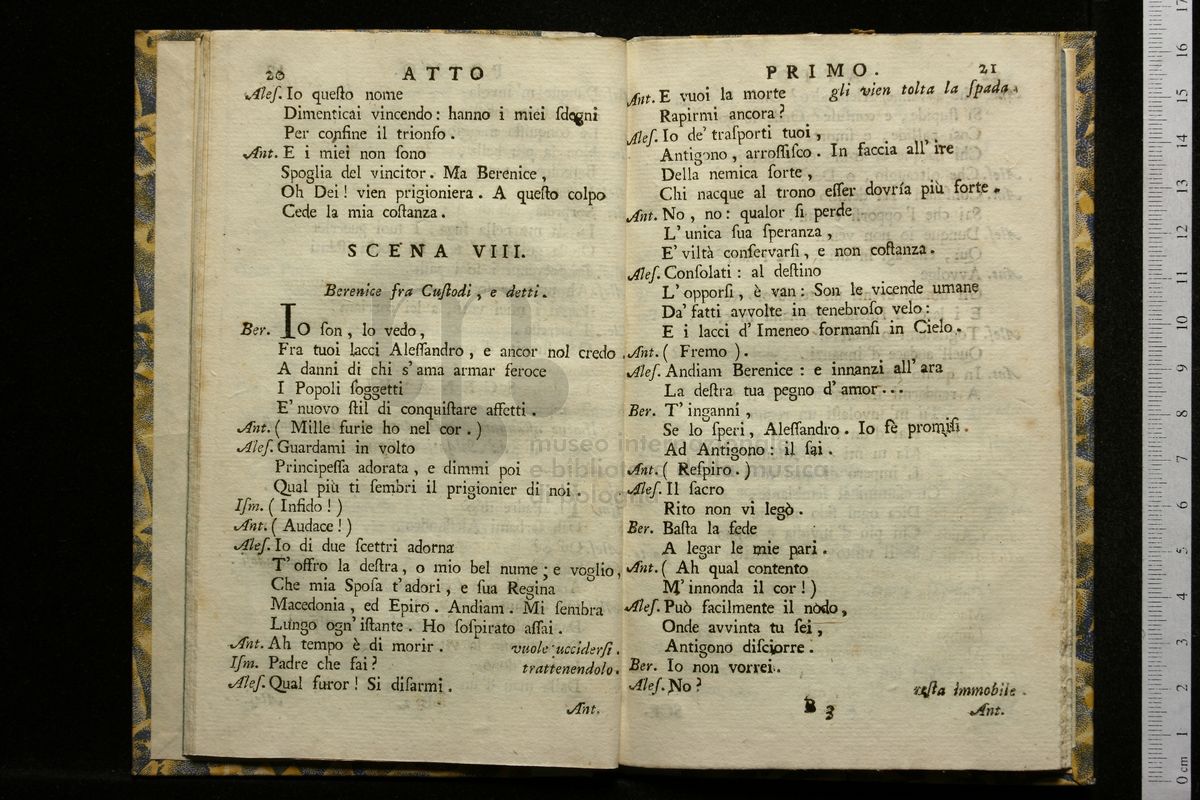 20 ATTO
Aleſ. Io queſto nome
Dimenticai vincendo: hanno i miei ſdegni
Per confine il trionfo.
Ant. E i miei non ſono
Spoglia del vincitor. Ma Berenice,
Oh Dei! vien prigioniera. A queſto colpo
Cede la mia coſtanza.
SCENA VIII.
Berenice fra Cuſtodi, e detti.
Ber. IO ſon, lo vedo,
Fra tuoi lacci Aleſſandro, e ancor nol credo.
A danni di chi s'ama armar feroce
I Popoli ſoggetti
E' nuovo ſtil di conquiſtare affetti.
Ant. ( Mille furie ho nel cor. )
Aleſ. Guardami in volto
Principeſſa adorata, e dimmi poi
Qual più ti ſembri il prigionier di noi.
Iſm. ( Infido! )
Ant. ( Audace! )
Aleſ. Io di due ſcettri adorna
T'offro la deſtra, o mio bel nume; e voglio,
Che mia Spoſa t'adori, e ſua Regina
Macedonia, ed Epiro. Andiam. Mi ſembra
Lungo ogn'iſtante. Ho ſoſpirato aſſai.
Ant. Ah tempo è di morir. vuole ucciderſi.
Iſm. Padre che fai? trattenendolo.
Aleſ. Qual furor! Si diſarmi.
Ant.
PRIMO. 21
Ant. E vuoi la morte gli vien tolta la ſpada.
Rapirmi ancora?
Aleſ. Io de' traſporti tuoi,
Antigono, arroſſiſco. In faccia all' ire
Della nemica ſorte,
Chi nacque al trono eſſer dovría più forte.
Ant. No, no: qualor ſi perde
L'unica ſua ſperanza,
E' viltà conſervarſi, e non coſtanza.
Aleſ. Conſolati: al deſtino
L'opporſi, è van: Son le vicende umane
Da' fatti avvolte in tenebroſo velo:
E i lacci d'Imeneo formanſi in Cielo.
Ant. ( Fremo ).
Aleſ. Andiam Berenice: e innanzi all' ara
La deſtra tua pegno d'amor...
Ber. T'inganni,
Se lo ſperi, Aleſſandro. Io fè promiſi.
Ad Antigono: il ſai.
Ant. ( Reſpiro. )
Aleſ. Il ſacro
Rito non vi legò.
Ber. Baſta la fede
A legar le mie pari.
Ant. ( Ah qual contento
M'innonda il cor! )
Aleſ. Può facilmente il nodo,
Onde avvinta tu ſei,
Antigono diſciorre.
Ber. Io non vorrei.
Aleſ. No? reſta immobile.
B 3 Ant.
museo internazionale
e biblioteca della musica
di bologna